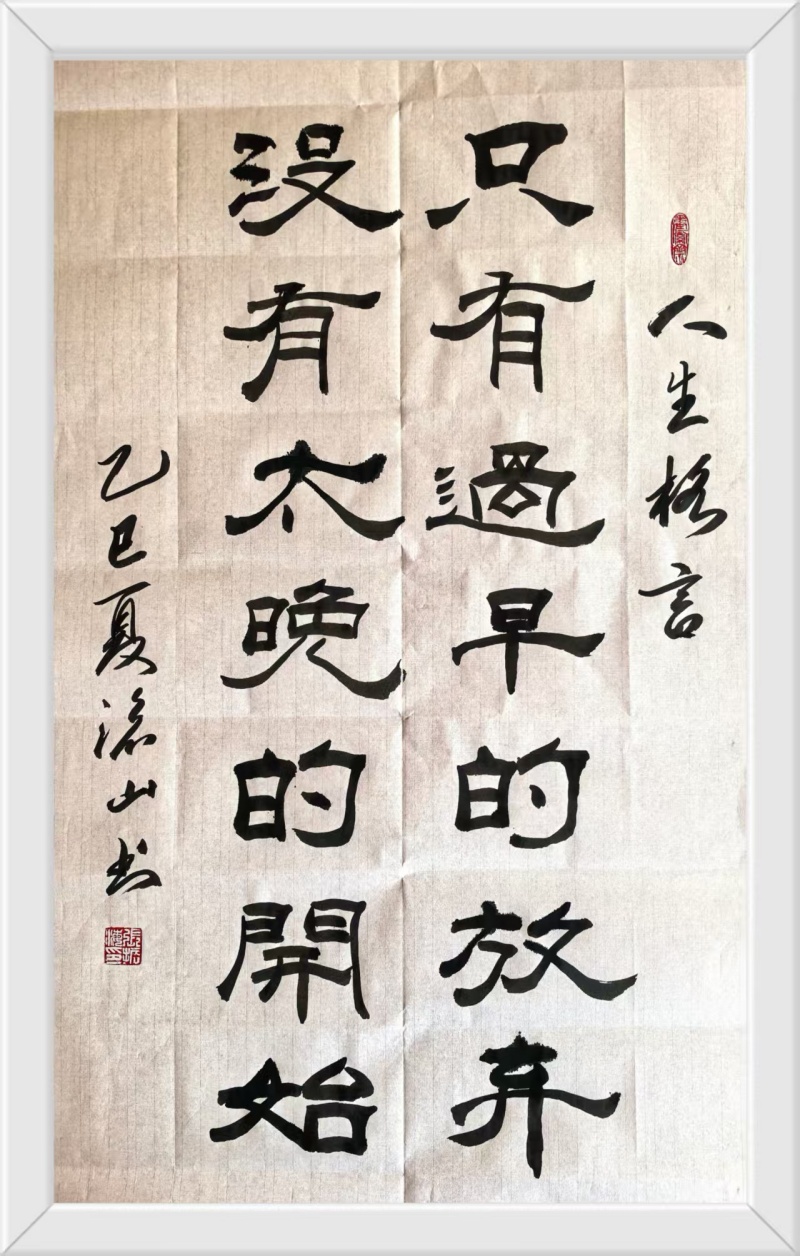 人生格言
只有過早的放弃
没有太晚的開始
乙巳夏滄山书